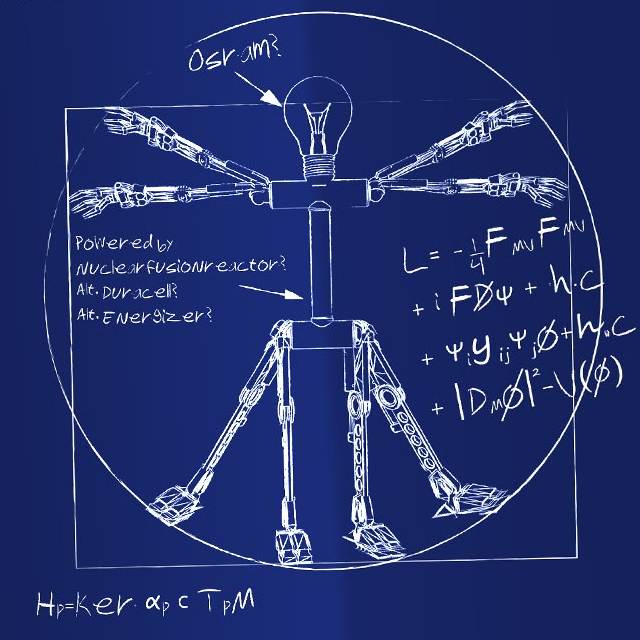 Osram?
Powered by
Nuclearfusionreactor?
Alt. Duracell?
Alt. Energizer?
L = - 1/4 F mν F mν
+ i F D̸ ψ + h.c
+ ψ i y ij ψ j ϕ + h.c
+ |D M ϕ|² - V(ϕ)
H p = Ker αp ⊂ T p M